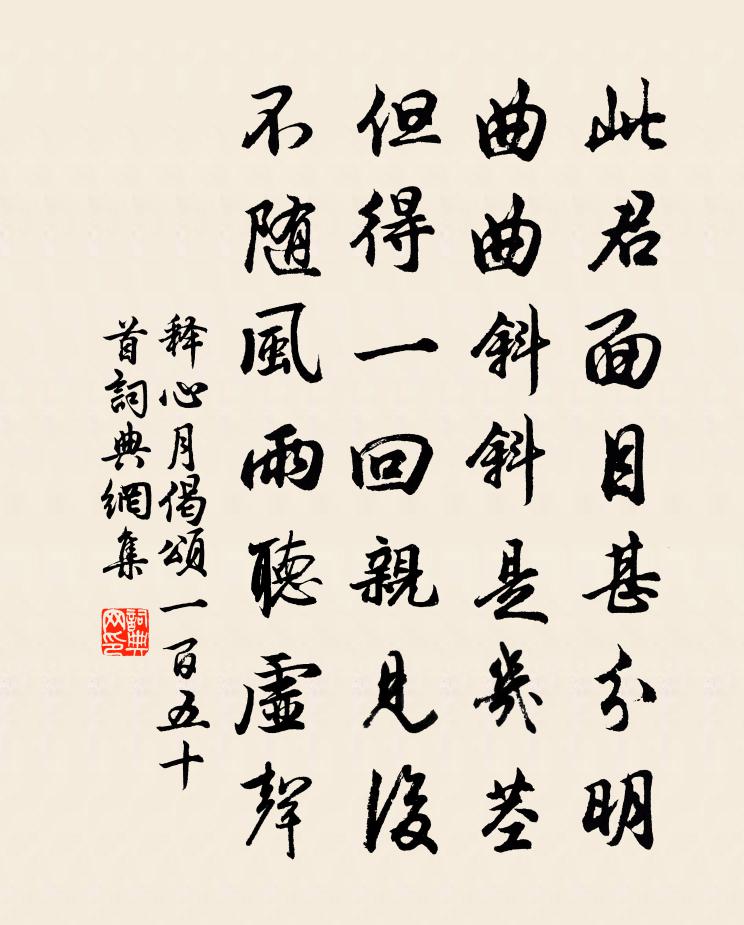 此君面目甚分明
曲曲斜斜是幾莖
但得一回親見後
不随風雨聽虛聲
释心月偈頌一百五十
首詞典網集
詞典网印